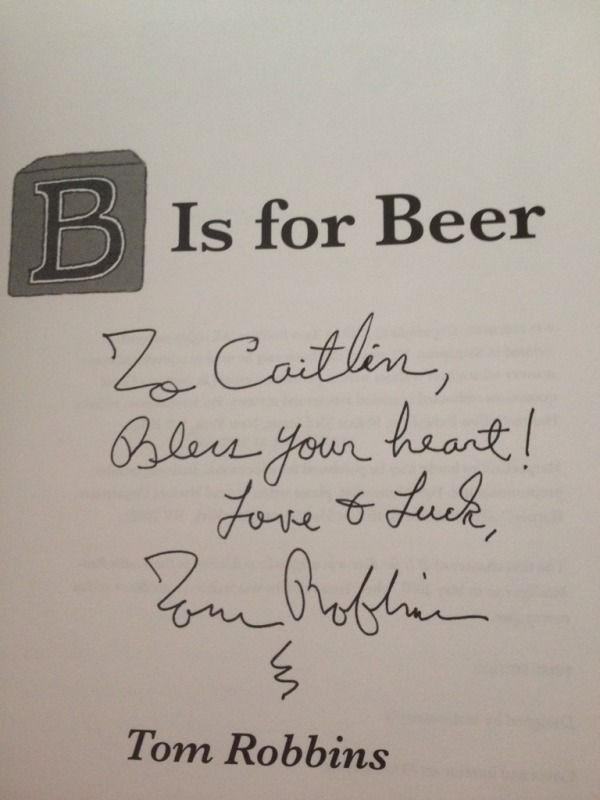 B Is for Beer
To Caitlin,
Bless your heart!
Love & Luck,
Tom Robbins
Tom Robbins